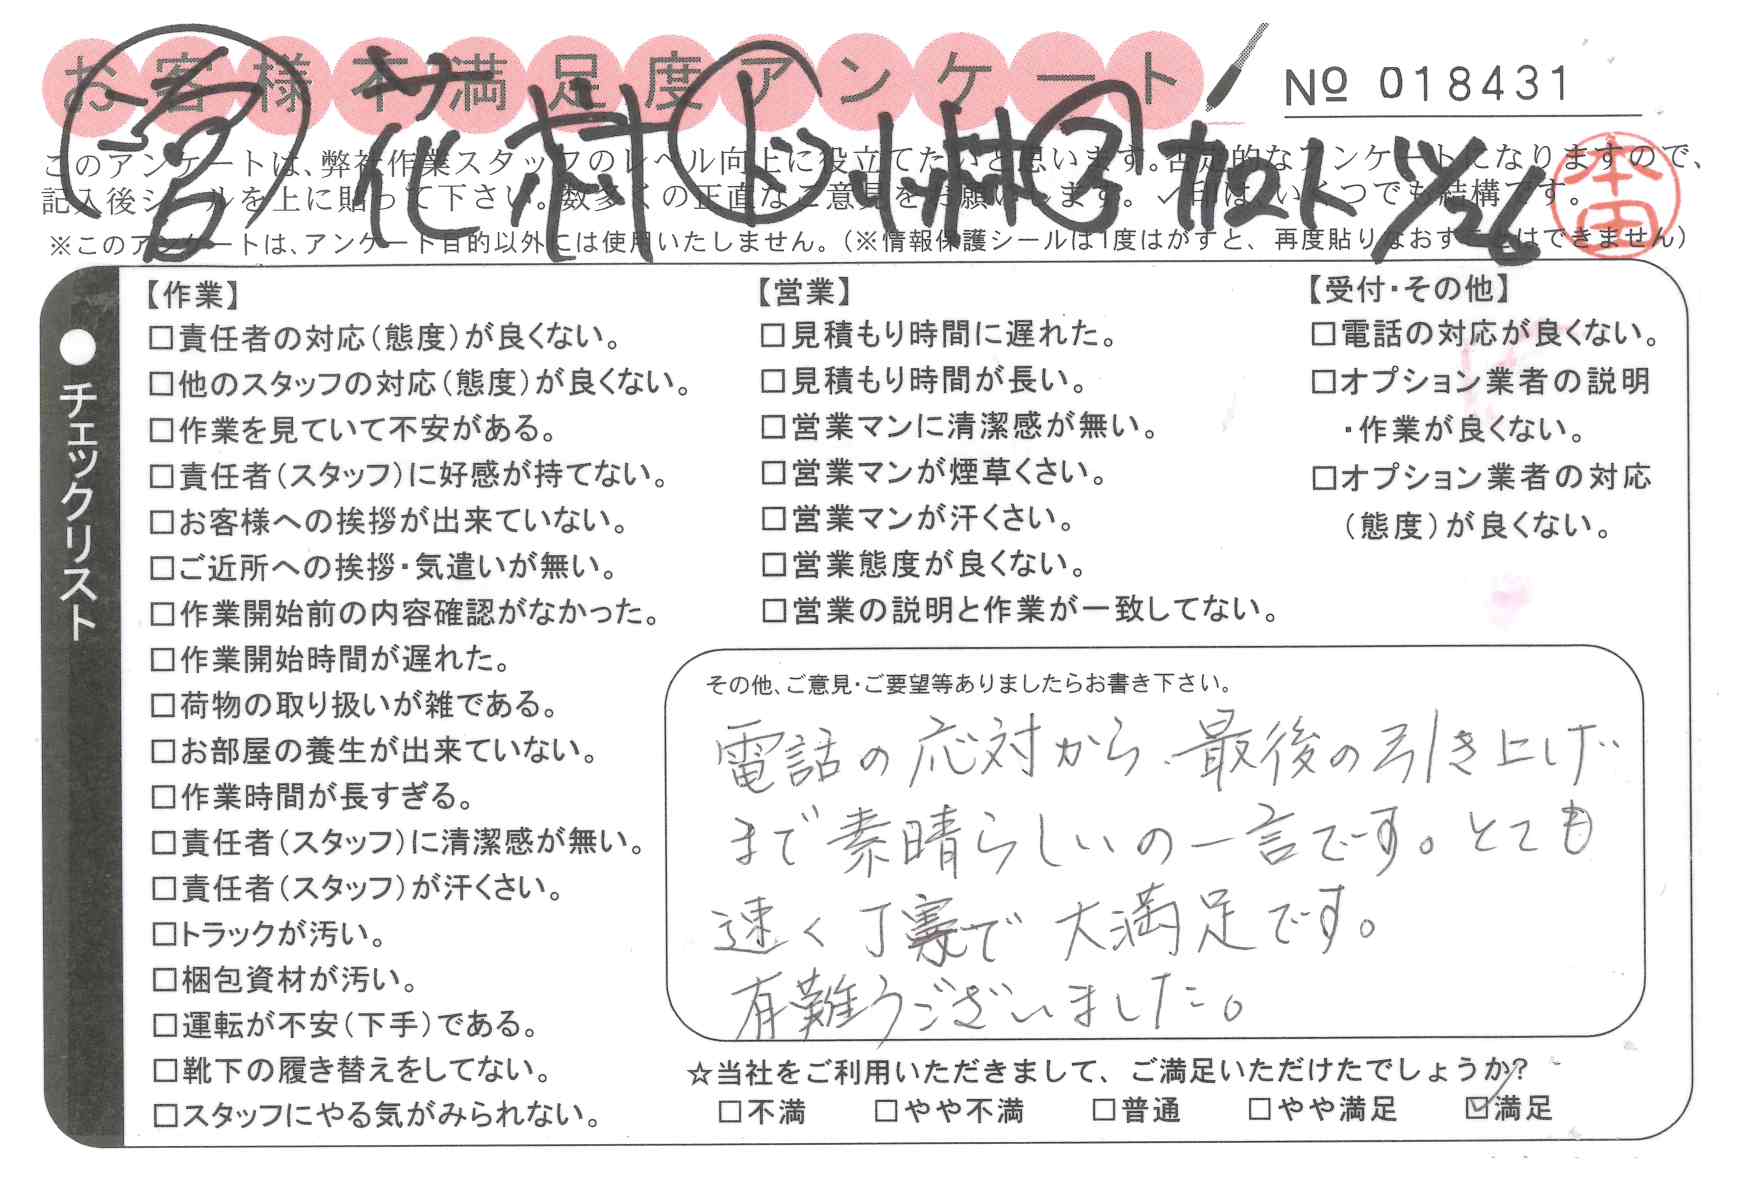 お客様不満足度アンケート
№ 018431
このアンケートは、弊社作業スタッフのレベル向上に役立てたいと思います。否定的なアンケートになりますので、
記入後シールを上に貼って下さい。数多くの正直なご意見をお願いします。✓印は、いくつでも結構です。
※このアンケートは、アンケート目的以外には使用いたしません。(※情報保護シールは1度はがすと、再度貼りなおすことはできません)
営 花村
本田
●チェックリスト
【作業】
□責任者の対応(態度)が良くない。
□他のスタッフの対応(態度)が良くない。
□作業を見ていて不安がある。
□責任者(スタッフ)に好感が持てない。
□お客様への挨拶が出来ていない。
□ご近所への挨拶・気遣いが無い。
□作業開始前の内容確認がなかった。
□作業開始時間が遅れた。
□荷物の取り扱いが雑である。
□お部屋の養生が出来ていない。
□作業時間が長すぎる。
□責任者(スタッフ)に清潔感が無い。
□責任者(スタッフ)が汗くさい。
□トラックが汚い。
□梱包資材が汚い。
□運転が不安(下手)である。
□靴下の履き替えをしてない。
□スタッフにやる気がみられない。
【営業】
□見積もり時間に遅れた。
□見積もり時間が長い。
□営業マンに清潔感が無い。
□営業マンが煙草くさい。
□営業マンが汗くさい。
□営業態度が良くない。
□営業の説明と作業が一致してない。
【受付・その他】
□電話の対応が良くない。
□オプション業者の説明
・作業が良くない。
□オプション業者の対応
(態度)が良くない。
その他、ご意見・ご要望等ありましたらお書き下さい。
電話の応対から、最後の引き上げ
まで素晴らしいの一言です。とても
速く丁寧で大満足です。
有難うございました。
☆当社をご利用いただきまして、ご満足いただけたでしょうか?
□不満 □やや不満 □普通 □やや満足 ☑満足